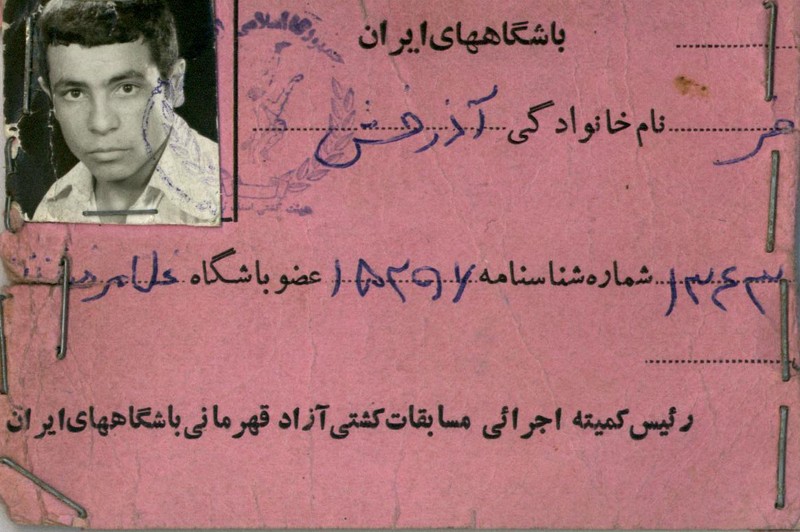 باشگاههای ایران
نام خانوادگی آذرخش
۱۳۴۳ شماره شناسنامه ۱۵۲۹۷ عضو باشگاه غلامرضا
رئیس کمیته اجرائی مسابقات کشتی آزاد قهرمانی باشگاههای ایران